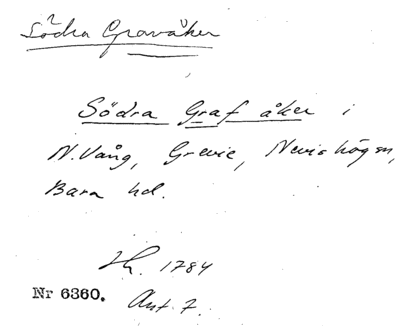 Södra Gravåker
Södra Graf åker i
N. Vång, Grevie, Nevishögsn,
Bara hd.
1784
Nr 6360. Akt. 7.